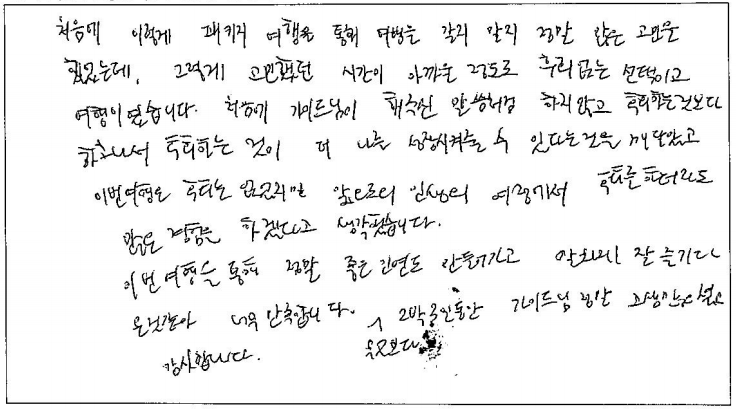 처음에 이렇게 패키지 여행을 통해 여행을 갈지 말지 정말 많은 고민을
했었는데, 그렇게 고민했던 시간이 아까울 정도로 후회 없는 선택이고
여행이였습니다. 처음에 가이드님이 해주신 말씀처럼 하지않고 후회하는것보다
하고나서 후회하는 것이 더 나를 성장시켜줄 수 있다는것을 깨달았고
이번여행은 후회는 없었지만 앞으로의 인생의 여정에서 후회를 하더라도
많은 경험을 하겠다고 생각했습니다.
이번 여행을 통해 정말 좋은 인연도 만들어가고 알차게 잘 즐기다
온것같아 너무 만족합니다. 2박3일동안 가이드님 정말 고생많으셨고
무엇보다
감사합니다.